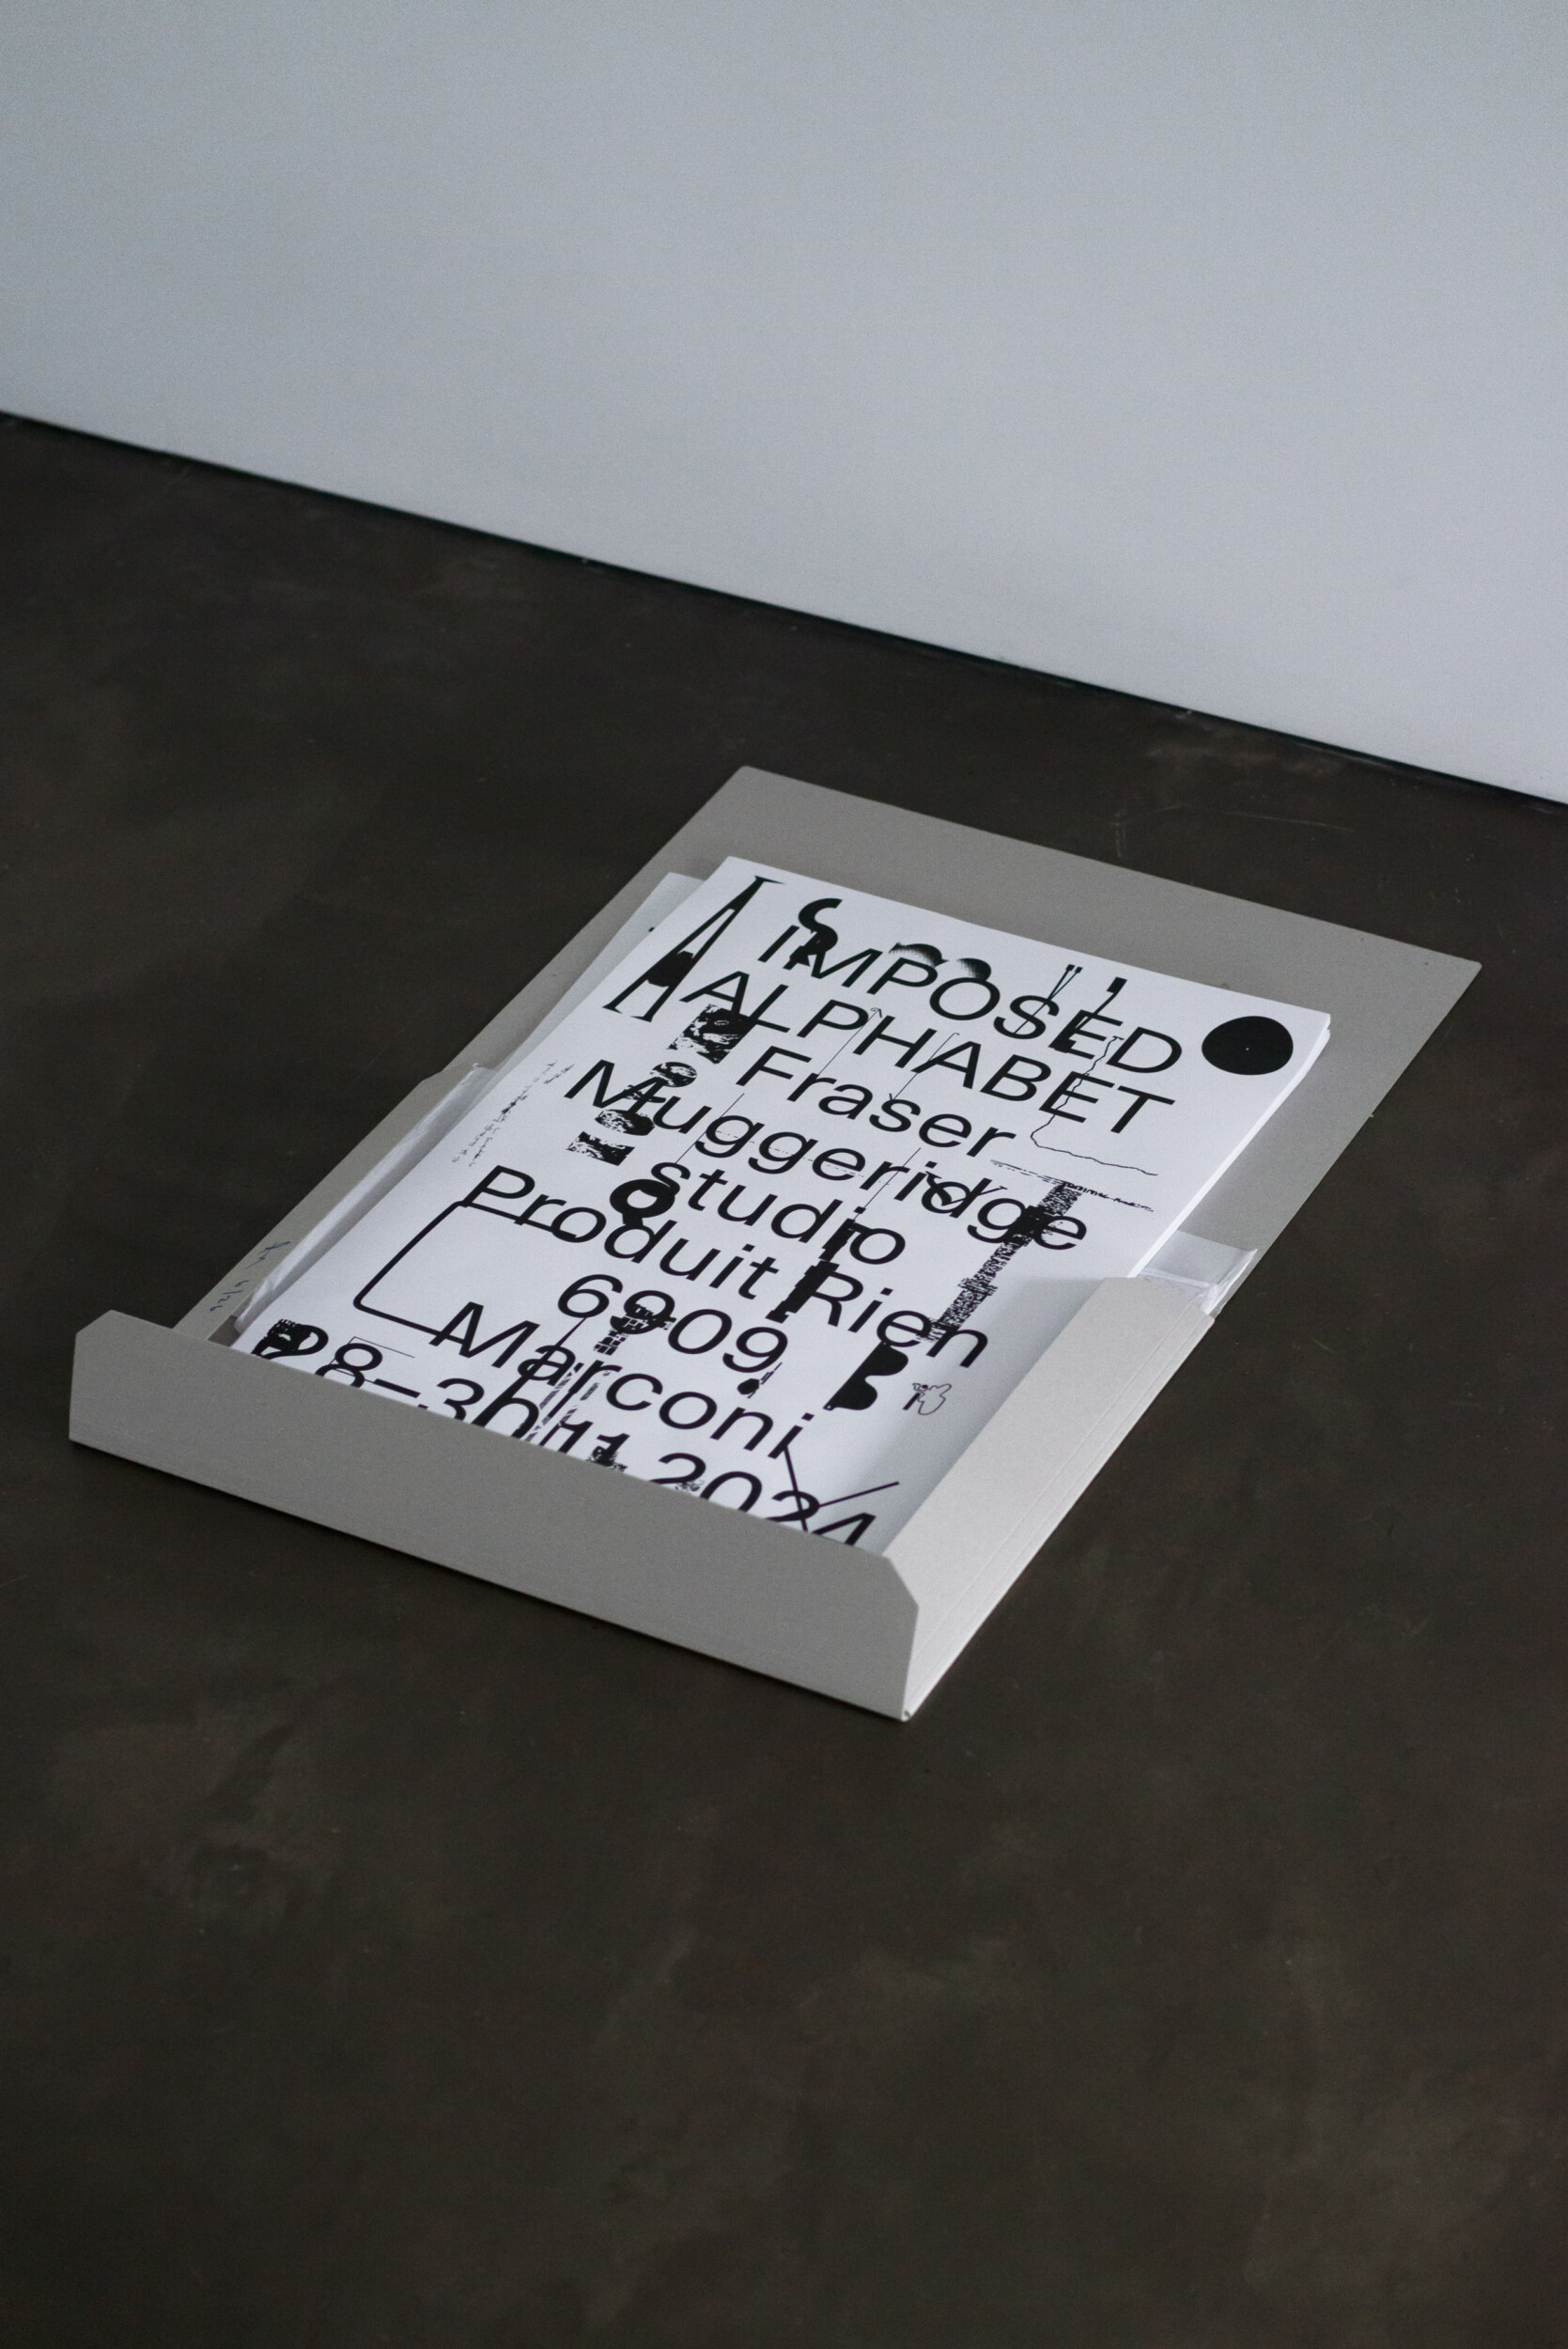 IMPOSED
ALPHABET
Fraser
Muggeridge
studio
Produit Rien
6909
Marconi
28–30.11.2024